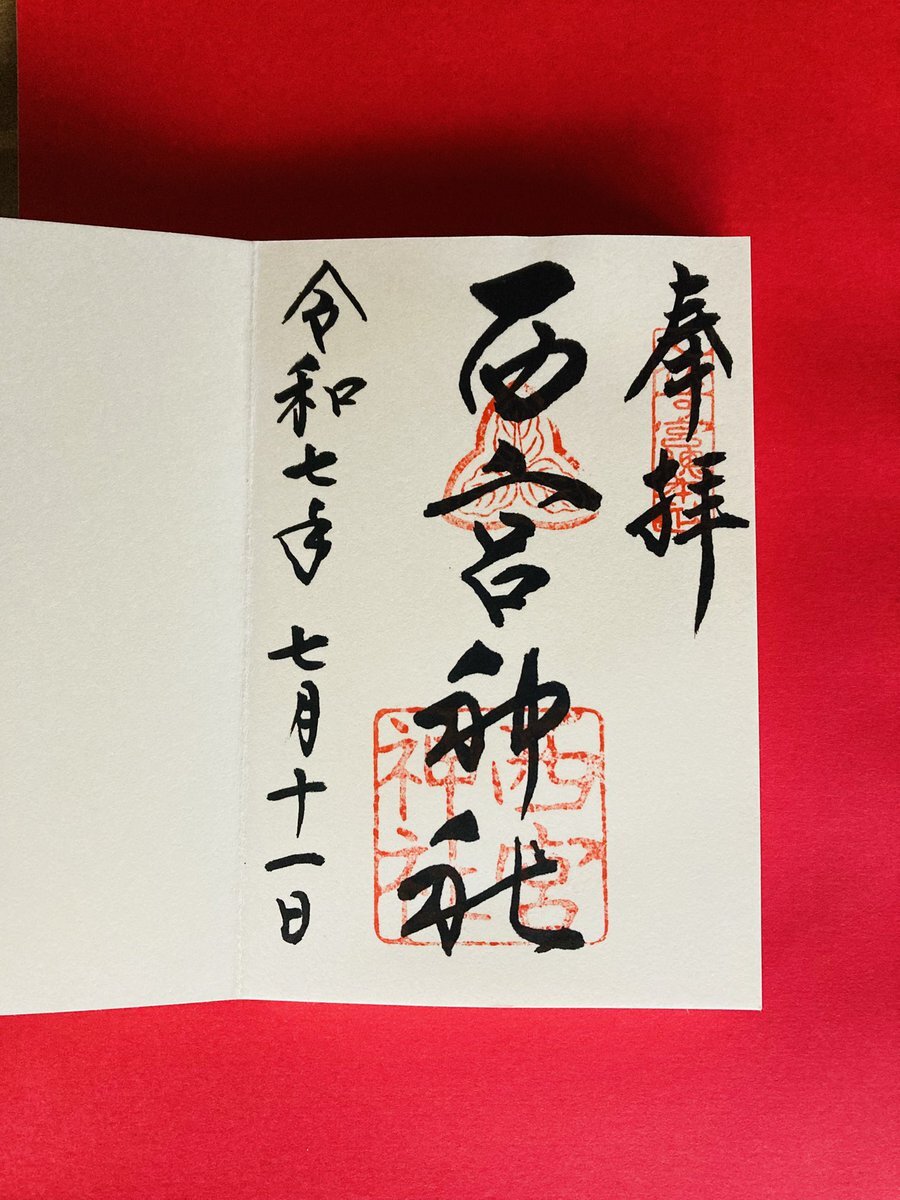 奉拝
西宮神社
西宮
神社
令和七年 七月十一日